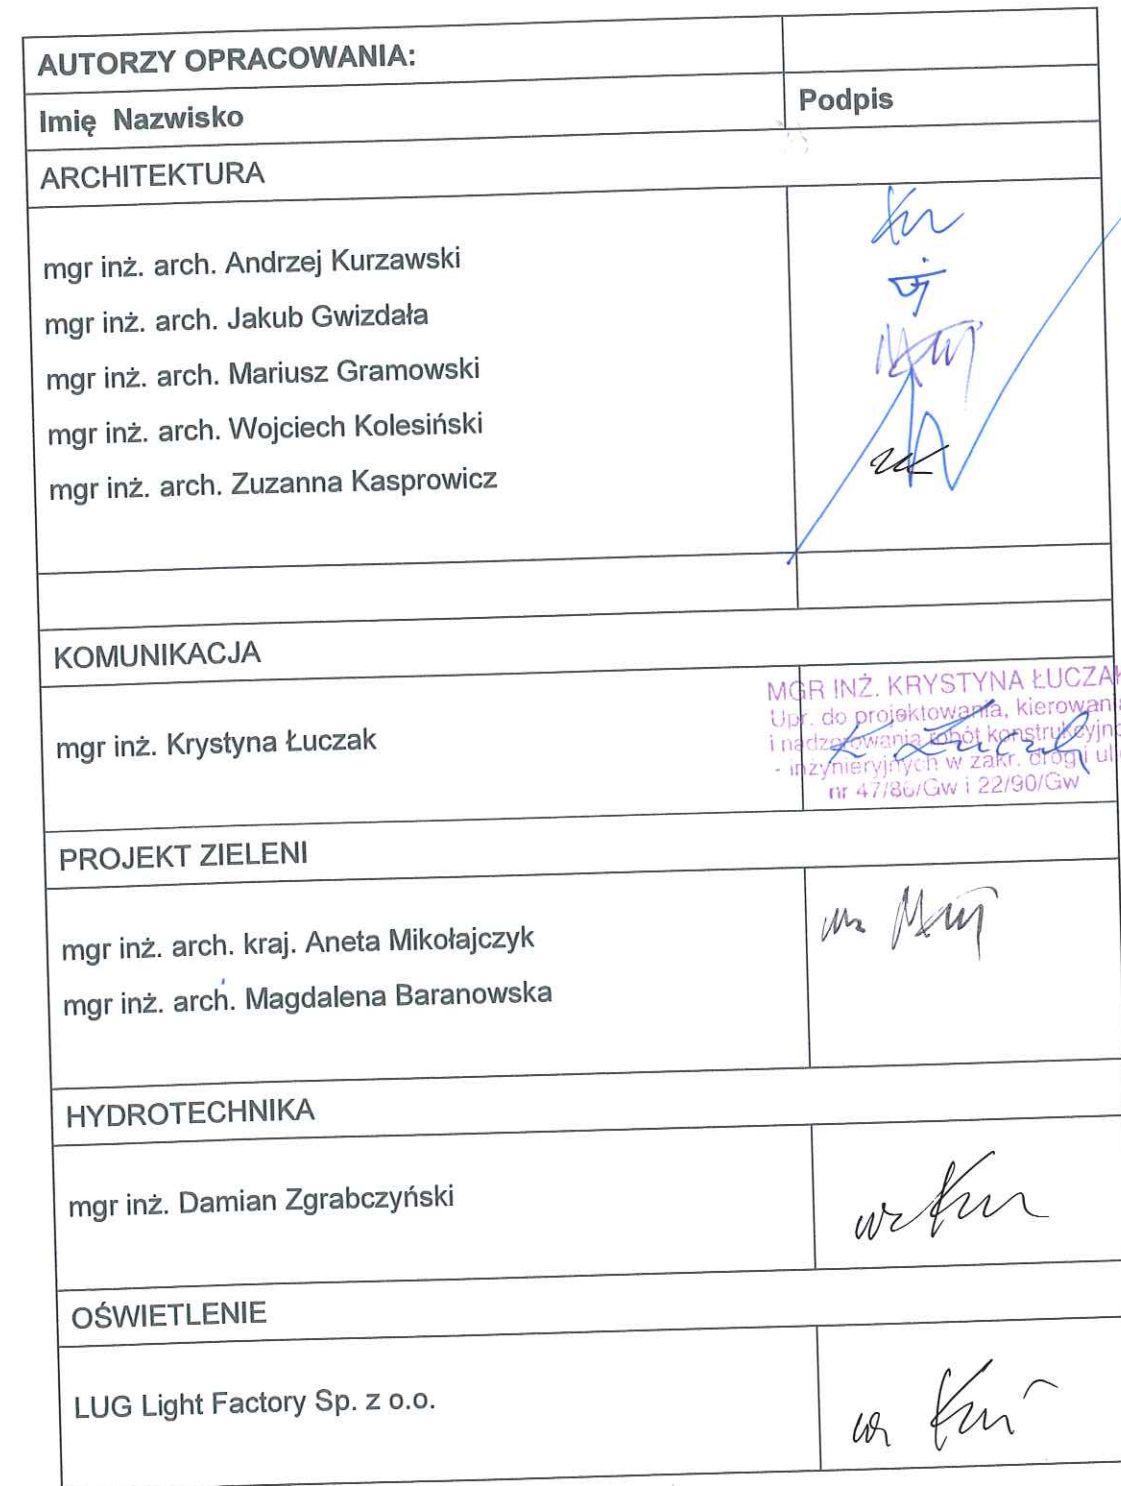 AUTORZY OPRACOWANIA:
Imię Nazwisko
Podpis
ARCHITEKTURA
mgr inż. arch. Andrzej Kurzawski
mgr inż. arch. Jakub Gwizdała
mgr inż. arch. Mariusz Gramowski
mgr inż. arch. Wojciech Kolesiński
mgr inż. arch. Zuzanna Kasprowicz
KOMUNIKACJA
mgr inż. Krystyna Łuczak
MGR INŻ. KRYSTYNA ŁUCZAK
Upr. do projektowania, kierowania
i nadzorowania robót konstrukcyjno
- inżynieryjnych w zakr. drogi uli
nr 47/86/Gw i 22/90/Gw
K Łuczak
PROJEKT ZIELENI
mgr inż. arch. kraj. Aneta Mikołajczyk
mgr inż. arch. Magdalena Baranowska
HYDROTECHNIKA
mgr inż. Damian Zgrabczyński
OŚWIETLENIE
LUG Light Factory Sp. z o.o.